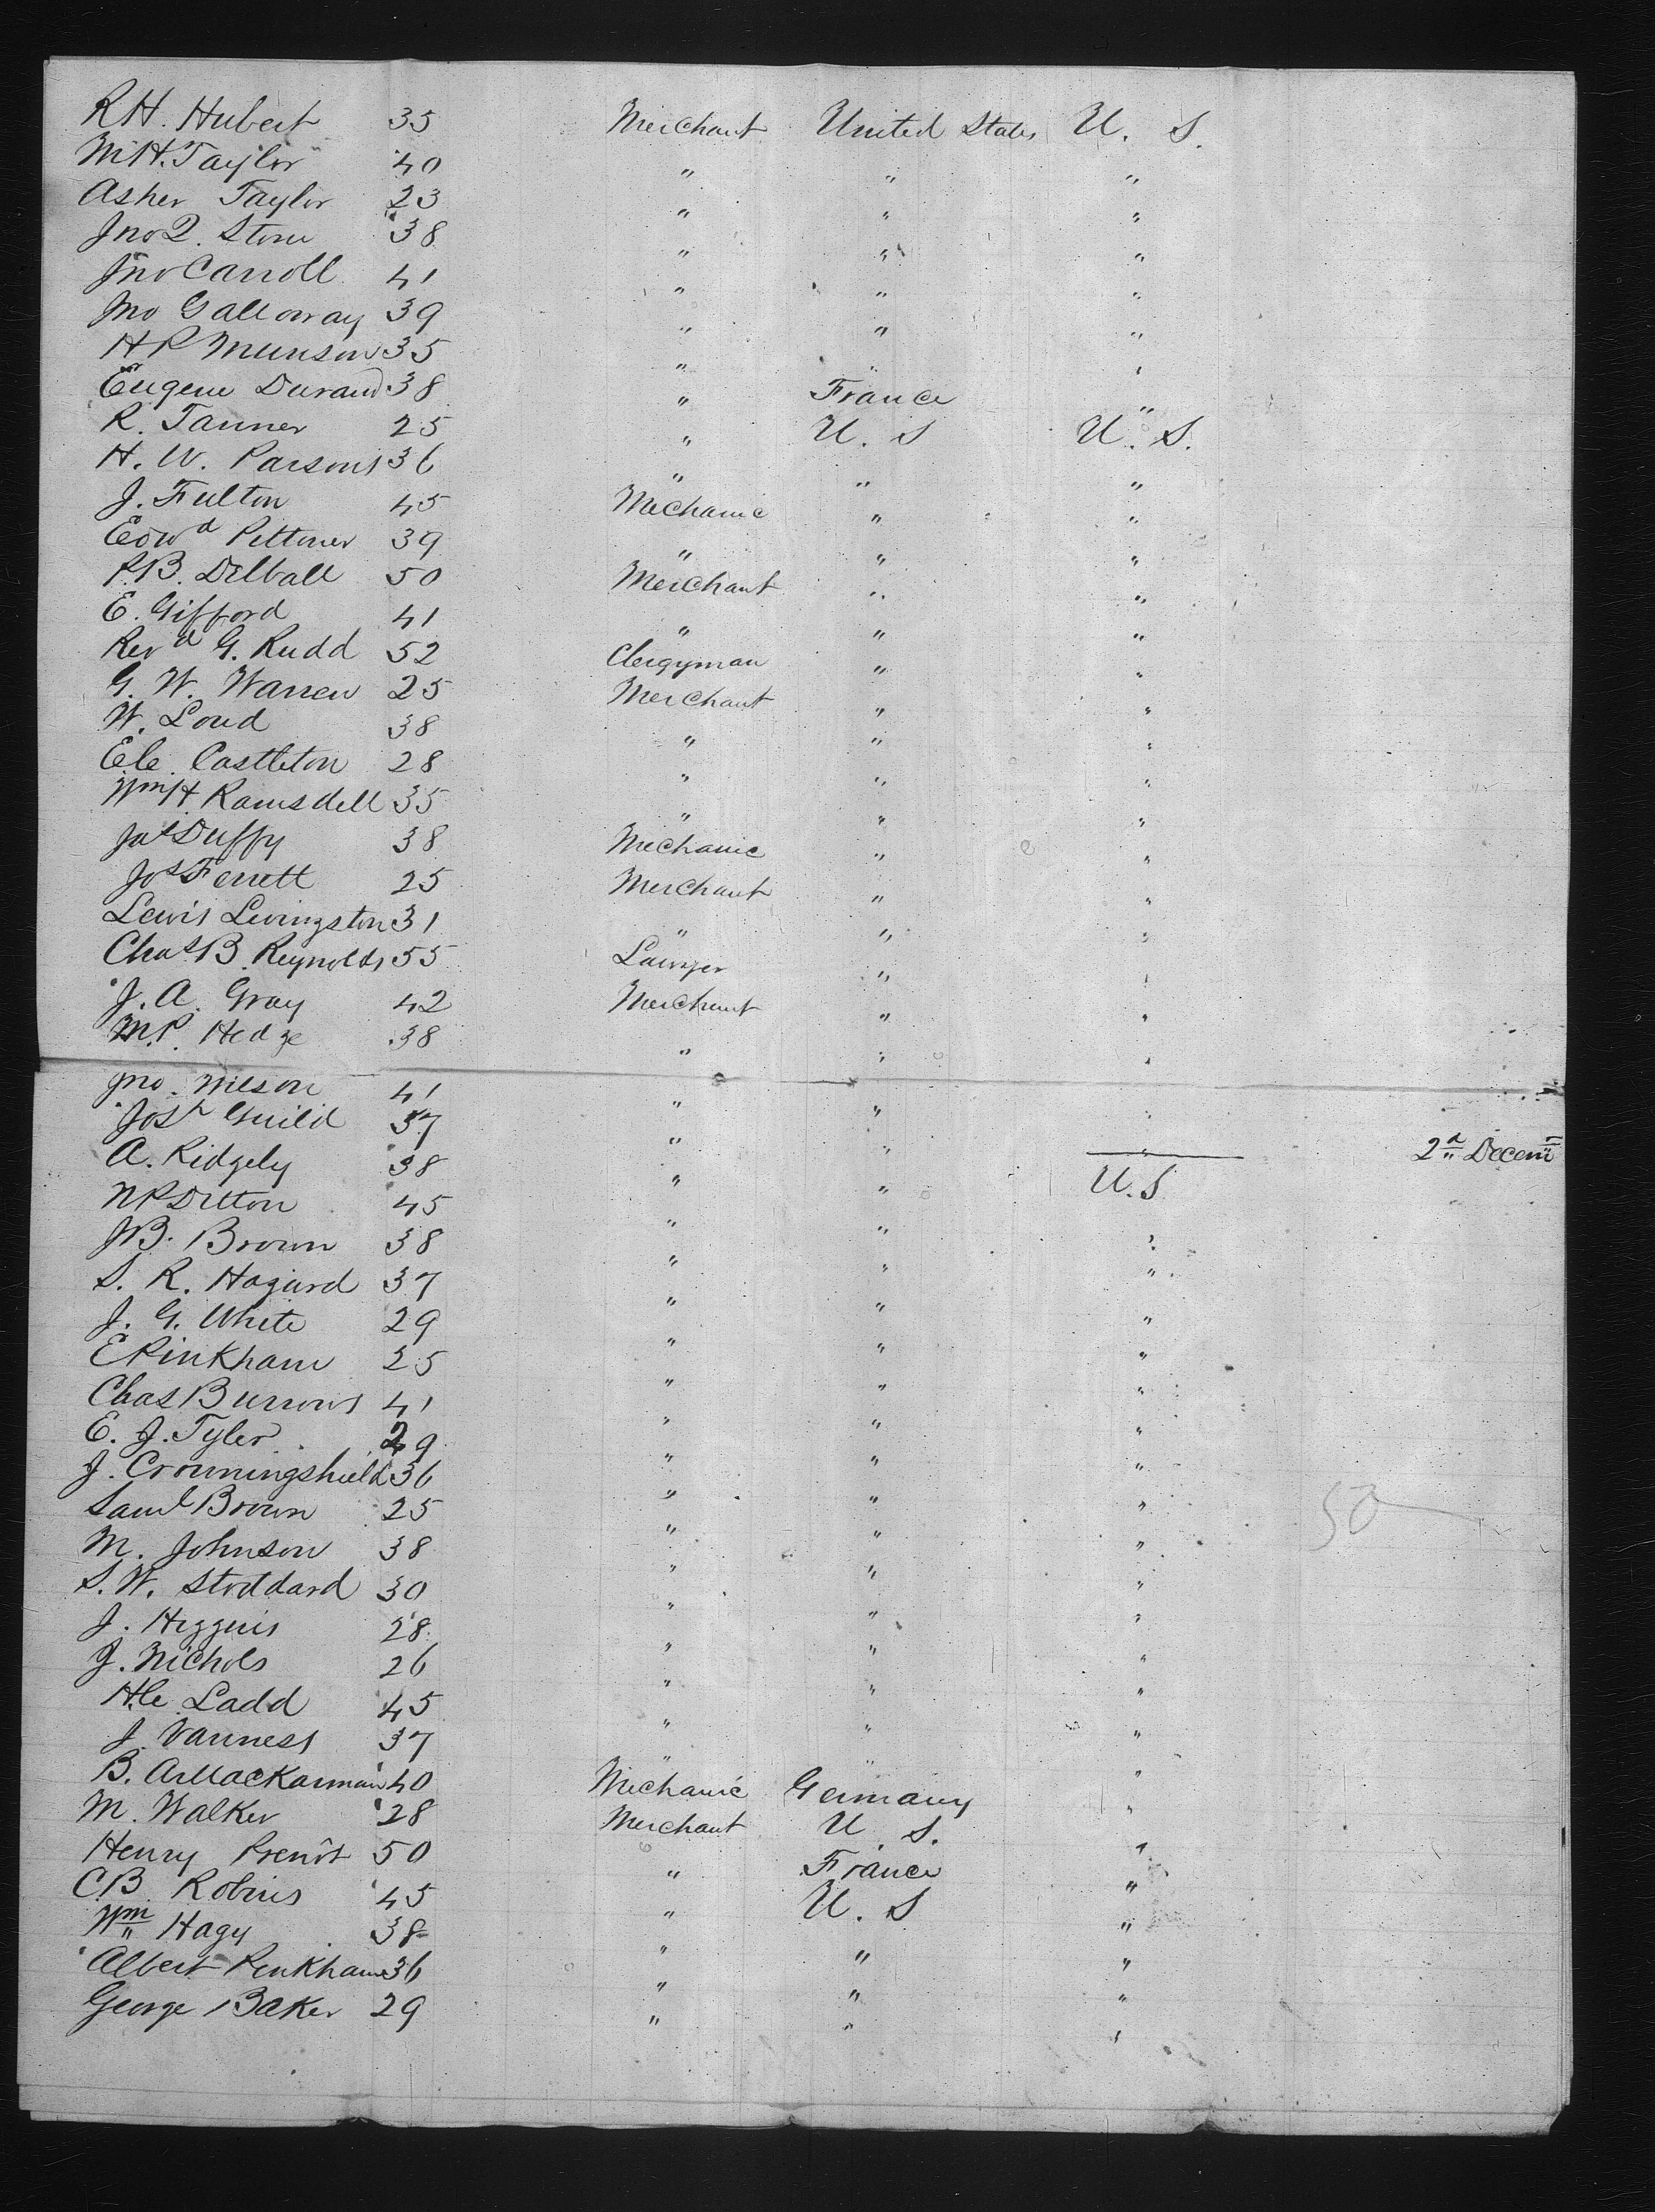 R H. Hubert 35 Merchant United States U. S.
W H. Taylor 40 " " "
Asher Taylor 23 " " "
Jno Q. Stone 38 " " "
Jno Carroll 41 " " "
Jno Galloway 39 " " "
H P Munson 35 " " "
Eugene Durand 38 " France "
R. Tanner 25 " U. S U. S.
H. W. Parsons 36 " " "
J. Fulton 45 Mechanic " "
Edwd 39 " " "
P. B. Delball 50 Merchant " "
E. Gifford 41 " " "
Revd G. Rudd 52 Clergyman " "
G. W. Warren 25 Merchant " "
W. Loud 38 " " "
E. C. Castleton 28 " " "
Wm H Ramsdell 35 " " "
Jas Duffy 38 Mechanic " "
Jos Ferrett 25 Merchant " "
Lewis Livingston 31 " " "
Chas B. Reynolds 55 Lawyer " "
J. A. Gray 42 Merchant " "
M. P. Hedge 38 " " "
Jno. Wilson 41 " " "
Josh Guild 37 " " "
A. Ridgely 38 " " U. S 2d Decem
N P Ditton 45 " " "
J B. Brown 38 " " "
S. R. Hazard 37 " " "
J. G. White 29 " " "
E Pinkham 25 " " "
Chas Burrows 41 " " "
E. J. Tyler 29 " " "
J. Crowningshield 36 " " "
Saml Brown 25 " " " 50
M. Johnson 38 " " "
S. W. Stoddard 30 " " "
J. Higgins 28 " " "
J. Nichols 26 " " "
H. C. Ladd 45 " " "
J. Vanness 37 " " "
B. 40 Mechanic Germany "
M. Walker 28 Merchant U. S. "
Henry 50 " France "
C. B. Robins 45 " U. S "
Wm Hagy 38 " " "
Albert Penkham 36 " " "
George Baker 29 " " "